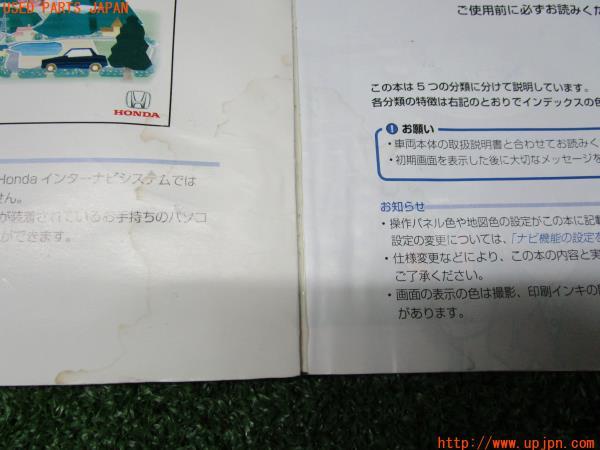 USED PARTS JAPAN
HONDA
Honda インターナビシステムでは
せん。
が装着されているお手持ちのパソコ
ができます。
ご使用前に必ずお読みくだ
この本は5つの分類に分けて説明しています。
各分類の特徴は右記のとおりでインデックスの色
お願い
・車両本体の取扱説明書と合わせてお読みく
・初期画面を表示した後に大切なメッセージを
お知らせ
・操作パネル色や地図色の設定がこの本に記載
設定の変更については、「ナビ機能の設定を
・仕様変更などにより、この本の内容と実
ご了承ください。
・画面の表示の色は撮影、印刷インキの
があります。
http://www.upjpn.com/